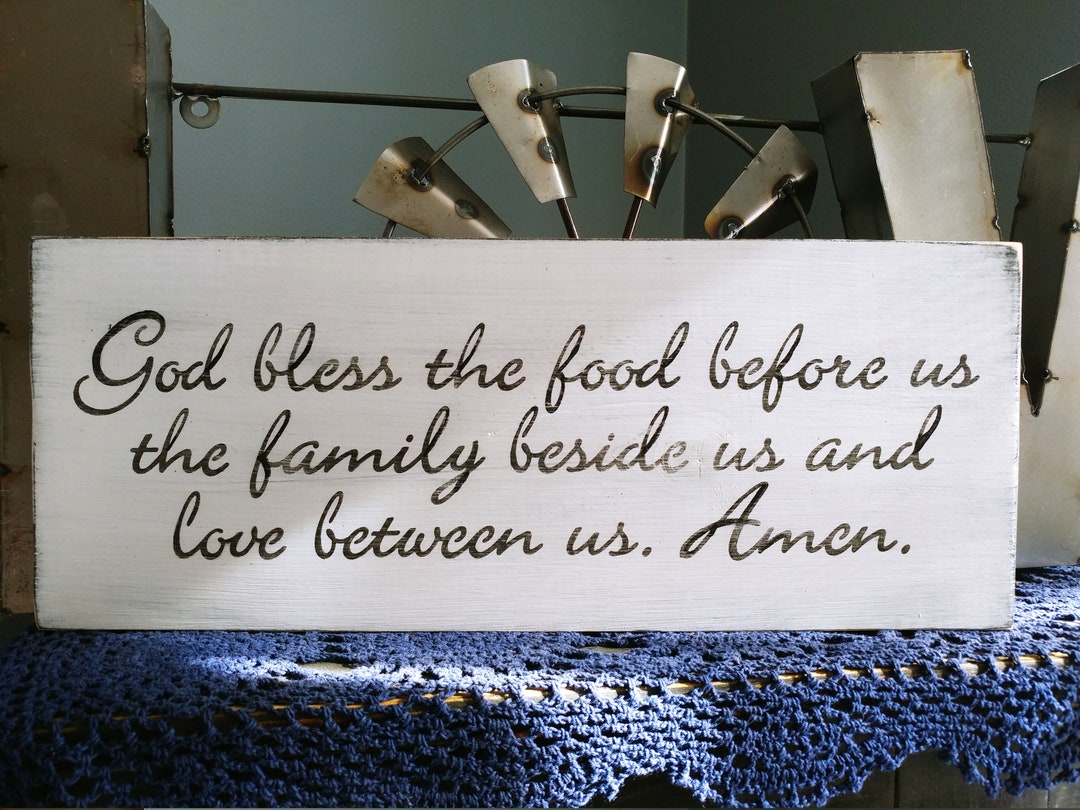 God bless the food before us
the family beside us and
love between us. Amen.